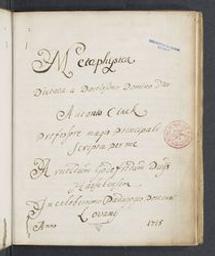 Metaphysica
Dictata a Doctissimo Domino Dno
Antonio
Professore magis principali
Scripta per me
Arnoldum Godefridum

In celeberrimo Pædagogio Porcensi
Lovanii
Anno 1715